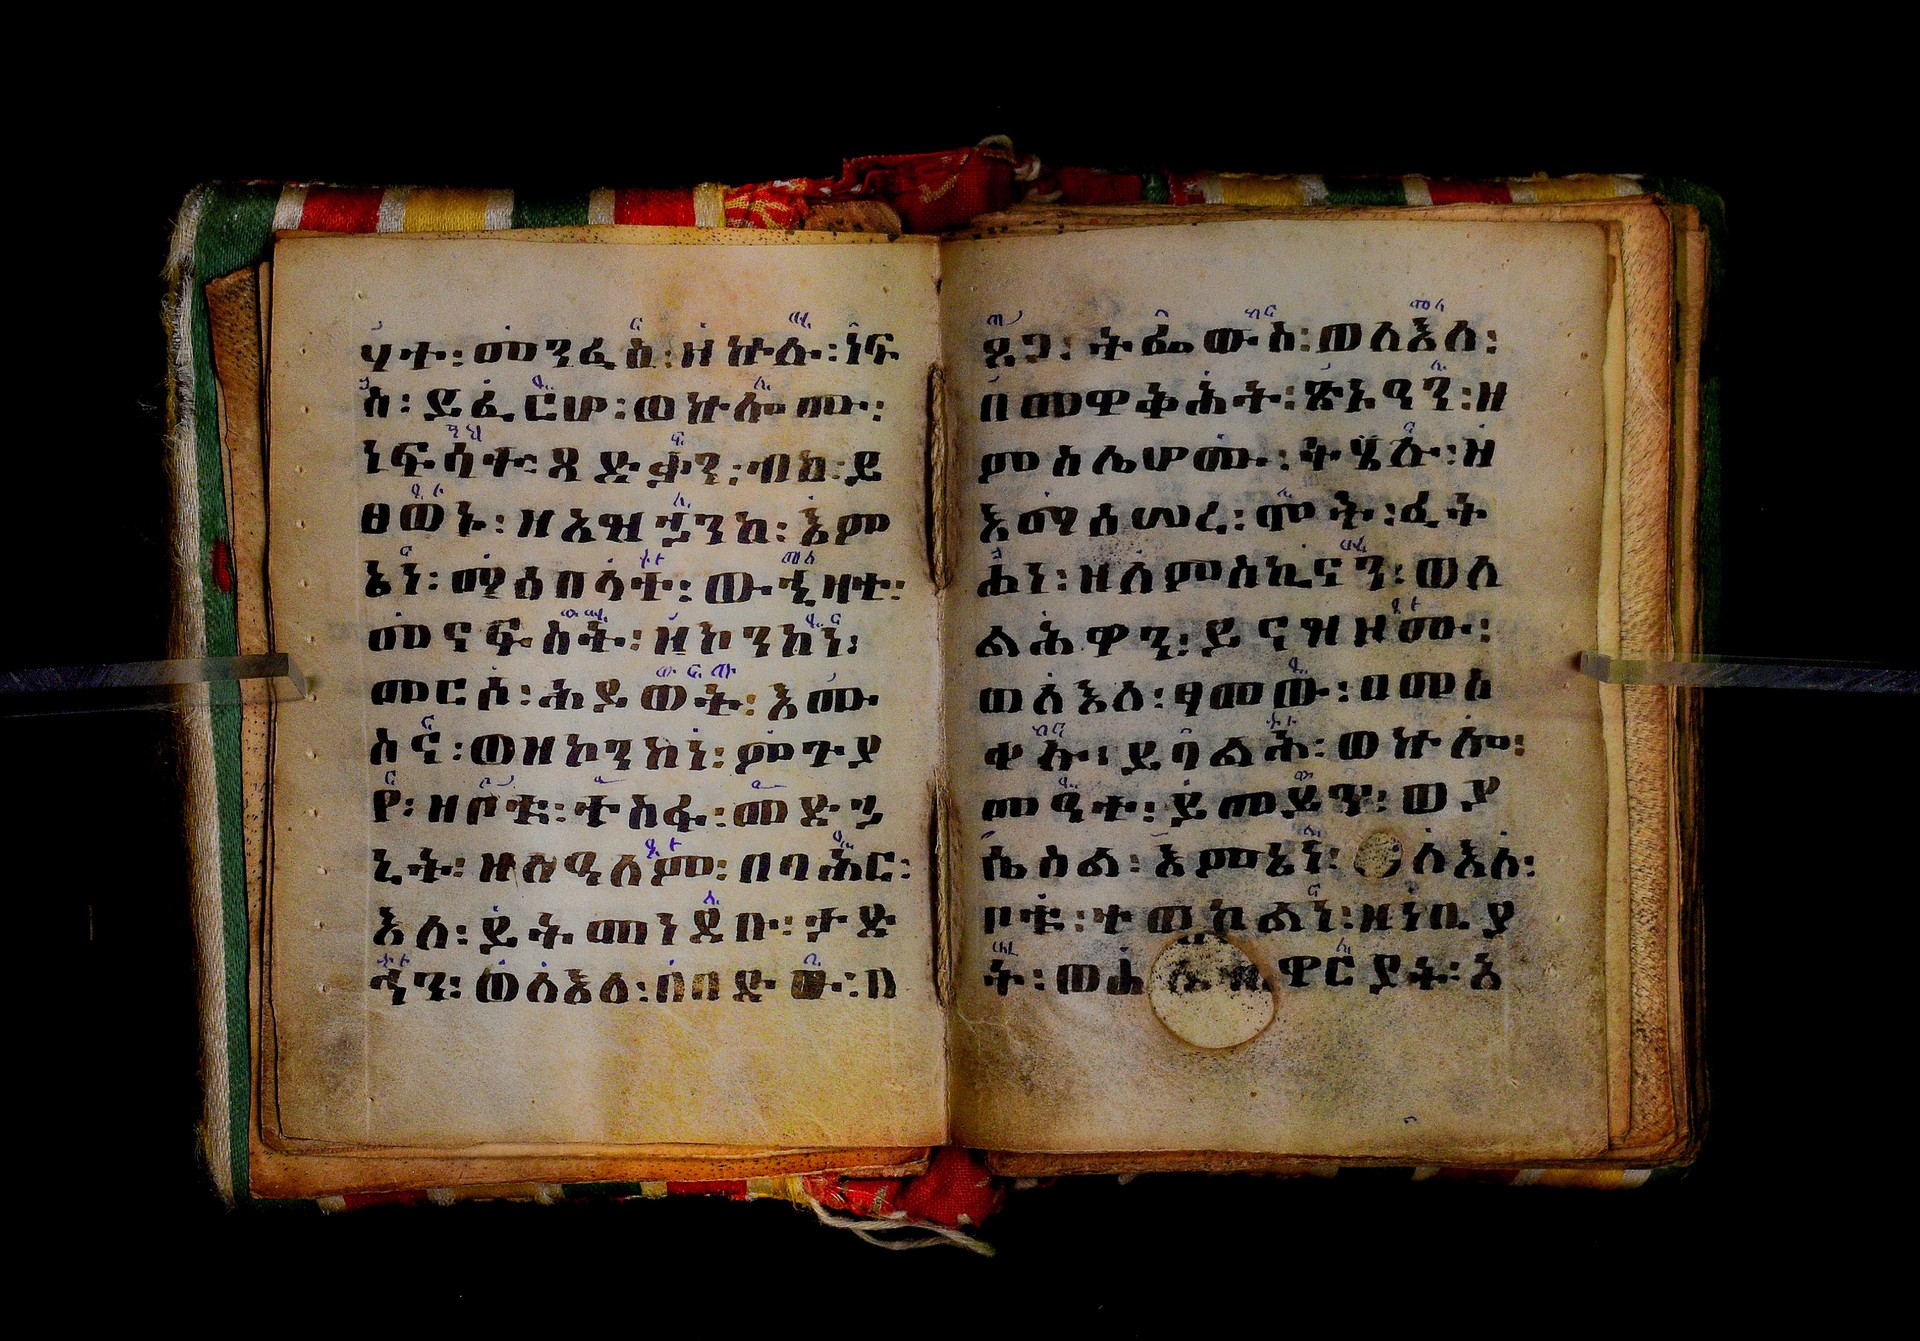 ሃተ፡ መንፈስ፡ ዘኵሉ፡ ነፍ
ስ፡ ይፈርሆ፡ ወኵሎሙ፡
ነፍሳት፡ ጻድቃን፡ ብከ፡ ይ
ፀወኑ፡ ዘአዝኃንከ፡ እም
ኔነ፡ ሚሰበሳተ፡ ውኂዘተ፡
መናፍስት፡ ዘኮንከነ፡
መርሶ፡ ሕይወት፡ እሙ
ስና፡ ወዘኮንከነ፡ ምጕያ
የ፡ ዘቦቱ፡ ተስፋ፡ መድኃ
ኒት፡ ዘለዓለም፡ በባሕር፡
እለ፡ ይትመነደቡ፡ ታድ
ኂን፡ ወለእለ፡ በበድው፡ በ
ጸጋ፡ ትፌውስ፡ ወለእለ፡
በመዋቅሕት፡ ጽኑዓን፡ ዘ
ምስሌሆሙ፡ ትሄሉ፡ ዘ
እማሰሠረ፡ ሞት፡ ፈት
ሐነ፡ ዘለምስኪናን፡ ወለ
ልሕዋን፡ ይናዝዞሙ፡
ወለእለ፡ ፃመው፡ በመስ
ቀሉ፡ ይባልሕ፡ ወኵሎ፡
መዓተ፡ ይመይጥ፡ ወያ
ሴስል፡ እምኔነ፡ ለእለ፡
ቦቱ፡ ተወከልነ፡ ዘነቢያ
ት፡ ዋርያት፡ አ